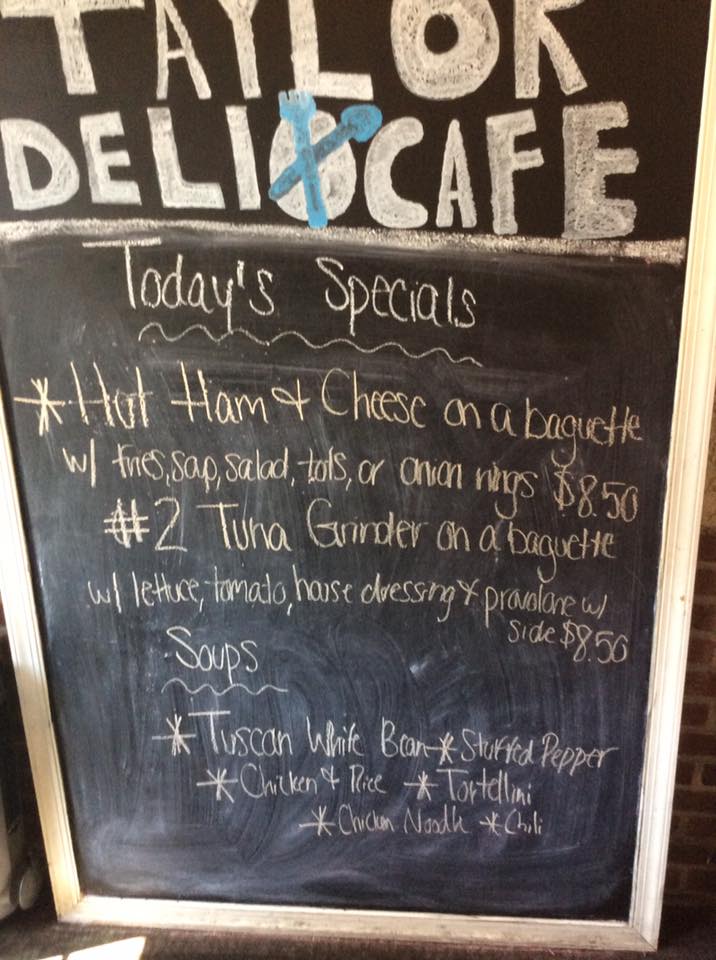 TAYLOR
DELI & CAFE
Today's Specials
* Hot Ham & Cheese on a baguette
w/ fries, soup, salad, tots, or onion rings $8.50
#2 Tuna Grinder on a baguette
w/ lettuce, tomato, house dressing & provolone w/
side $8.50
Soups
* Tuscan White Bean * Stuffed Pepper
* Chicken & Rice * Tortellini
* Chicken Noodle * Chili